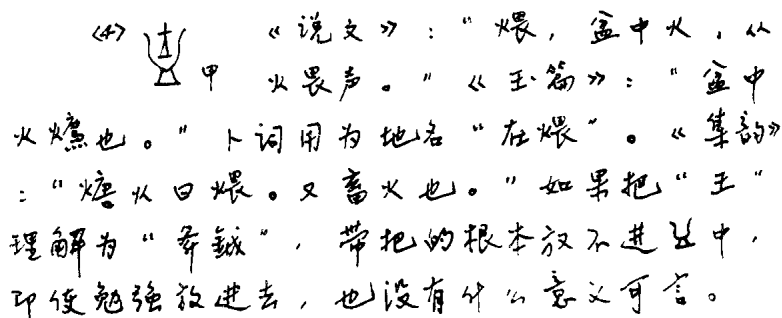 <4> 甲 《说文》:"煨,盆中火,从
火畏声。"《玉篇》:"盆中
火爊也。"卜词用为地名"在煨"。《集韵》
:"煻火曰煨。又畜火也。"如果把"王"
理解为"斧鉞",带把的根本放不进皿中,
即使勉强放进去,也没有什么意义可言。